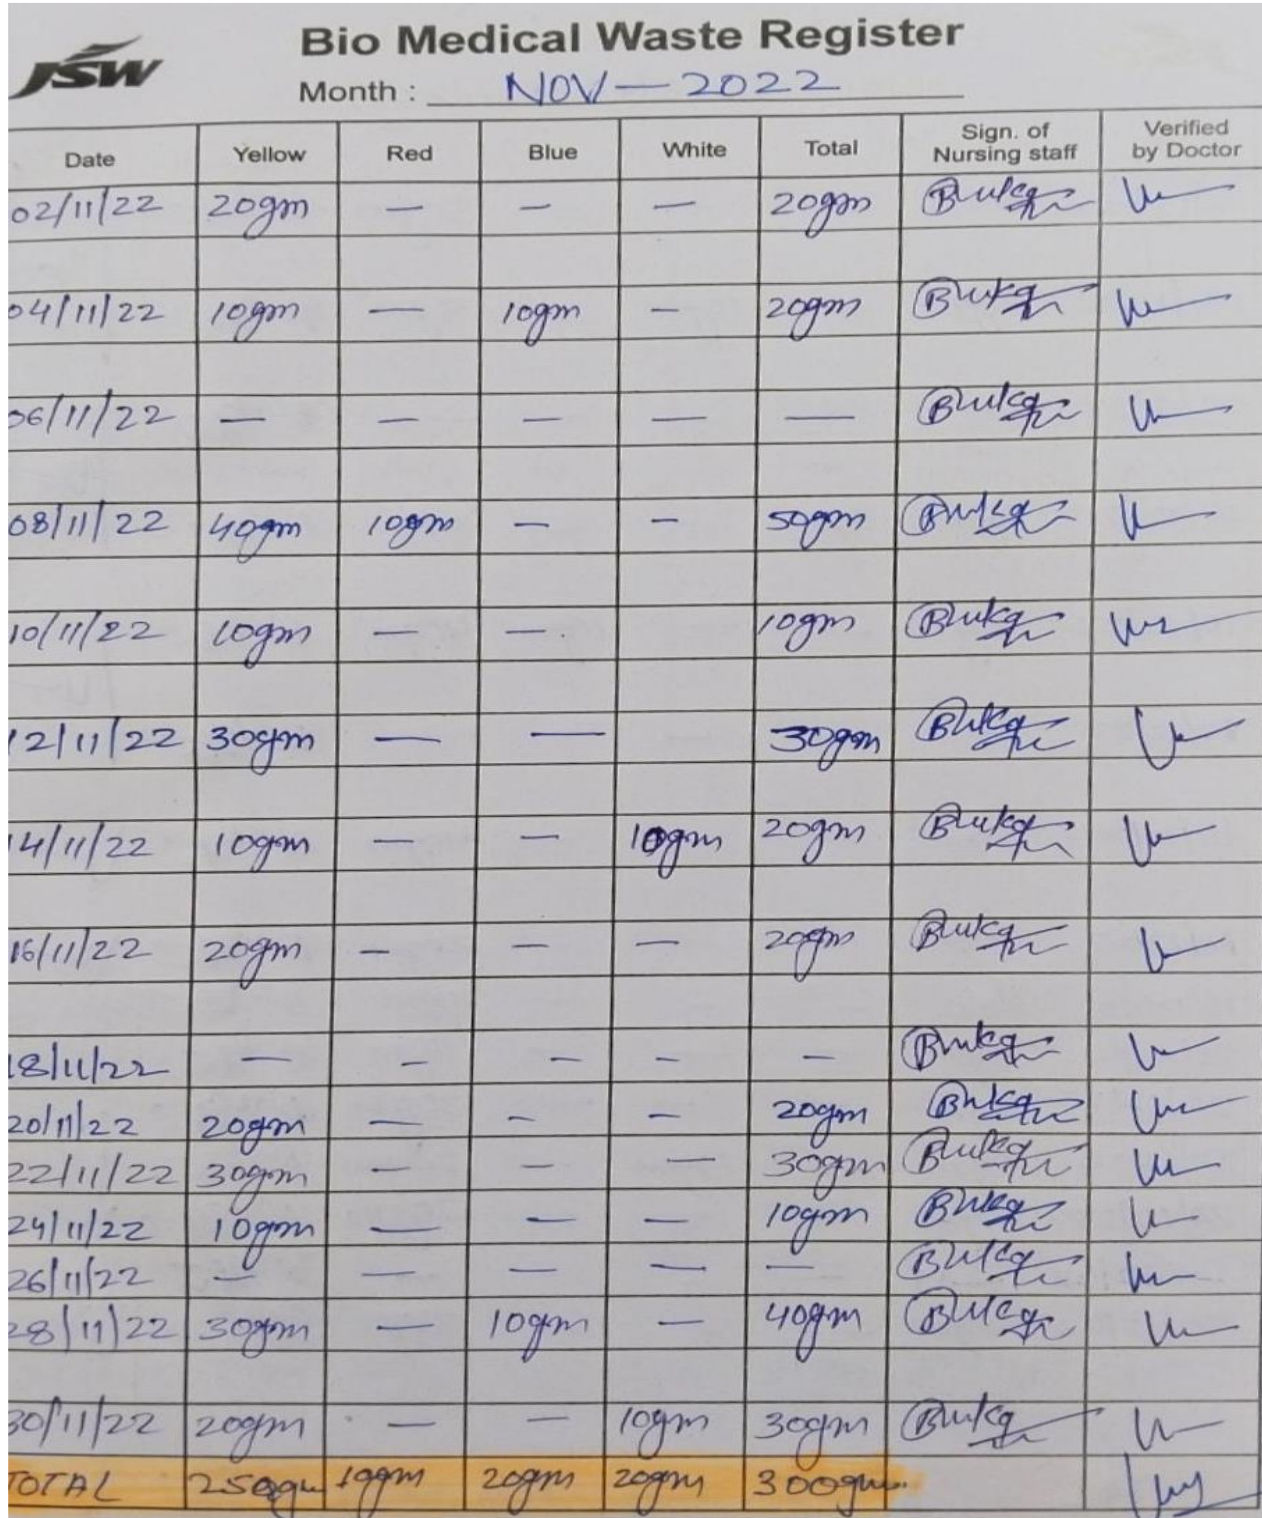 JSW
Bio Medical Waste Register
Month : NOV — 2022
Date Yellow Red Blue White Total Sign. of Nursing staff Verified by Doctor
02/11/22 20gm — — — 20gm
04/11/22 10gm — 10gm — 20gm
06/11/22 — — — — —
08/11/22 40gm 10gm — — 50gm
10/11/22 10gm — — 10gm
12/11/22 30gm — — 30gm
14/11/22 10gm — — 10gm 20gm
16/11/22 20gm — — — 20gm
18/11/22 — — — — —
20/11/22 20gm — — — 20gm
22/11/22 30gm — — — 30gm
24/11/22 10gm — — — 10gm
26/11/22 — — — — —
28/11/22 30gm — 10gm — 40gm
30/11/22 20gm — — 10gm 30gm
TOTAL 250gm 10gm 20gm 20gm 300gm